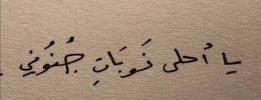 يا أحلى نَوبَاتِ جُنُوني.